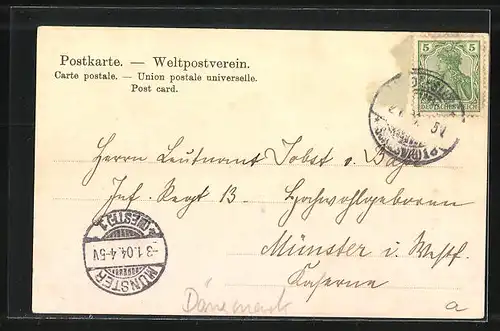 Postkarte. — Weltpostverein.
Carte postale. — Union postale universelle.
Post card.
5 5
DEUTSCHES REICH
Herrn Leutnant Jobst v.
Inf. Regt 13. Hochwohlgeboren
Münster i. Westf.
Kaserne
MÜNSTER
-3.1.04.4-5V
(WESTF.) 1
Dänemark
a